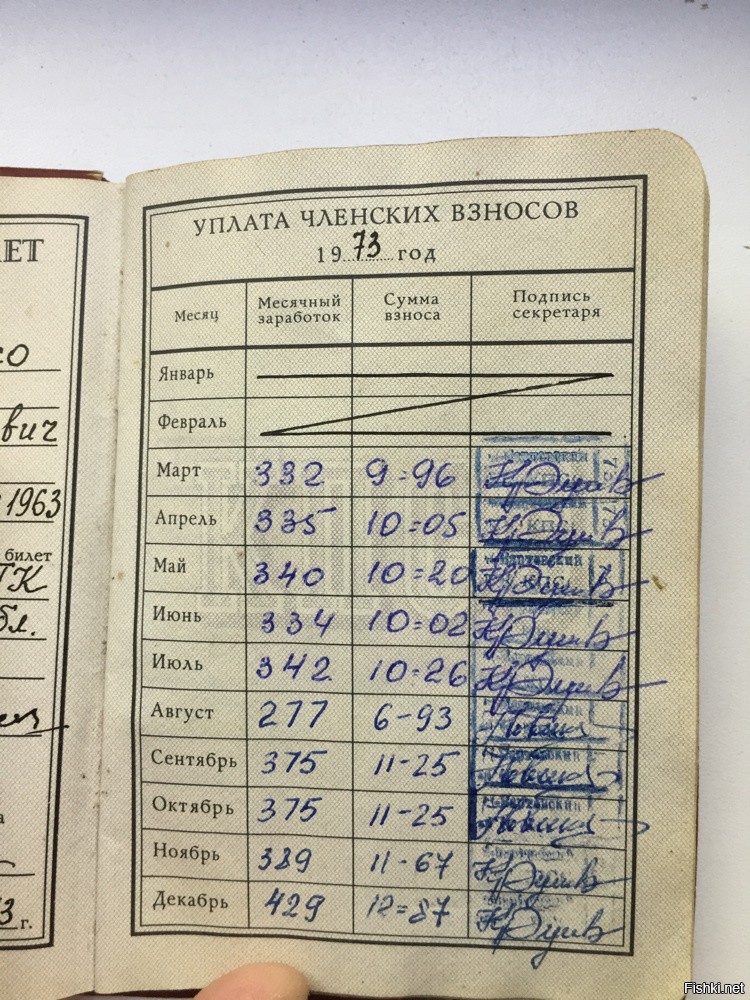 ЕТ
вич
1963
билет
бл.
3 г.
УПЛАТА ЧЛЕНСКИХ ВЗНОСОВ
1973 год
Месяц Месячный заработок Сумма взноса Подпись секретаря
Январь
Февраль
Март 332 9=96
Апрель 335 10=05
КПС
Май 340 10=20
Июнь 334 10=02
Июль 342 10=26
Август 277 6-93
Сентябрь 375 11-25
Октябрь 375 11-25
Ноябрь 389 11-67
Декабрь 429 12=87
Fishki.net